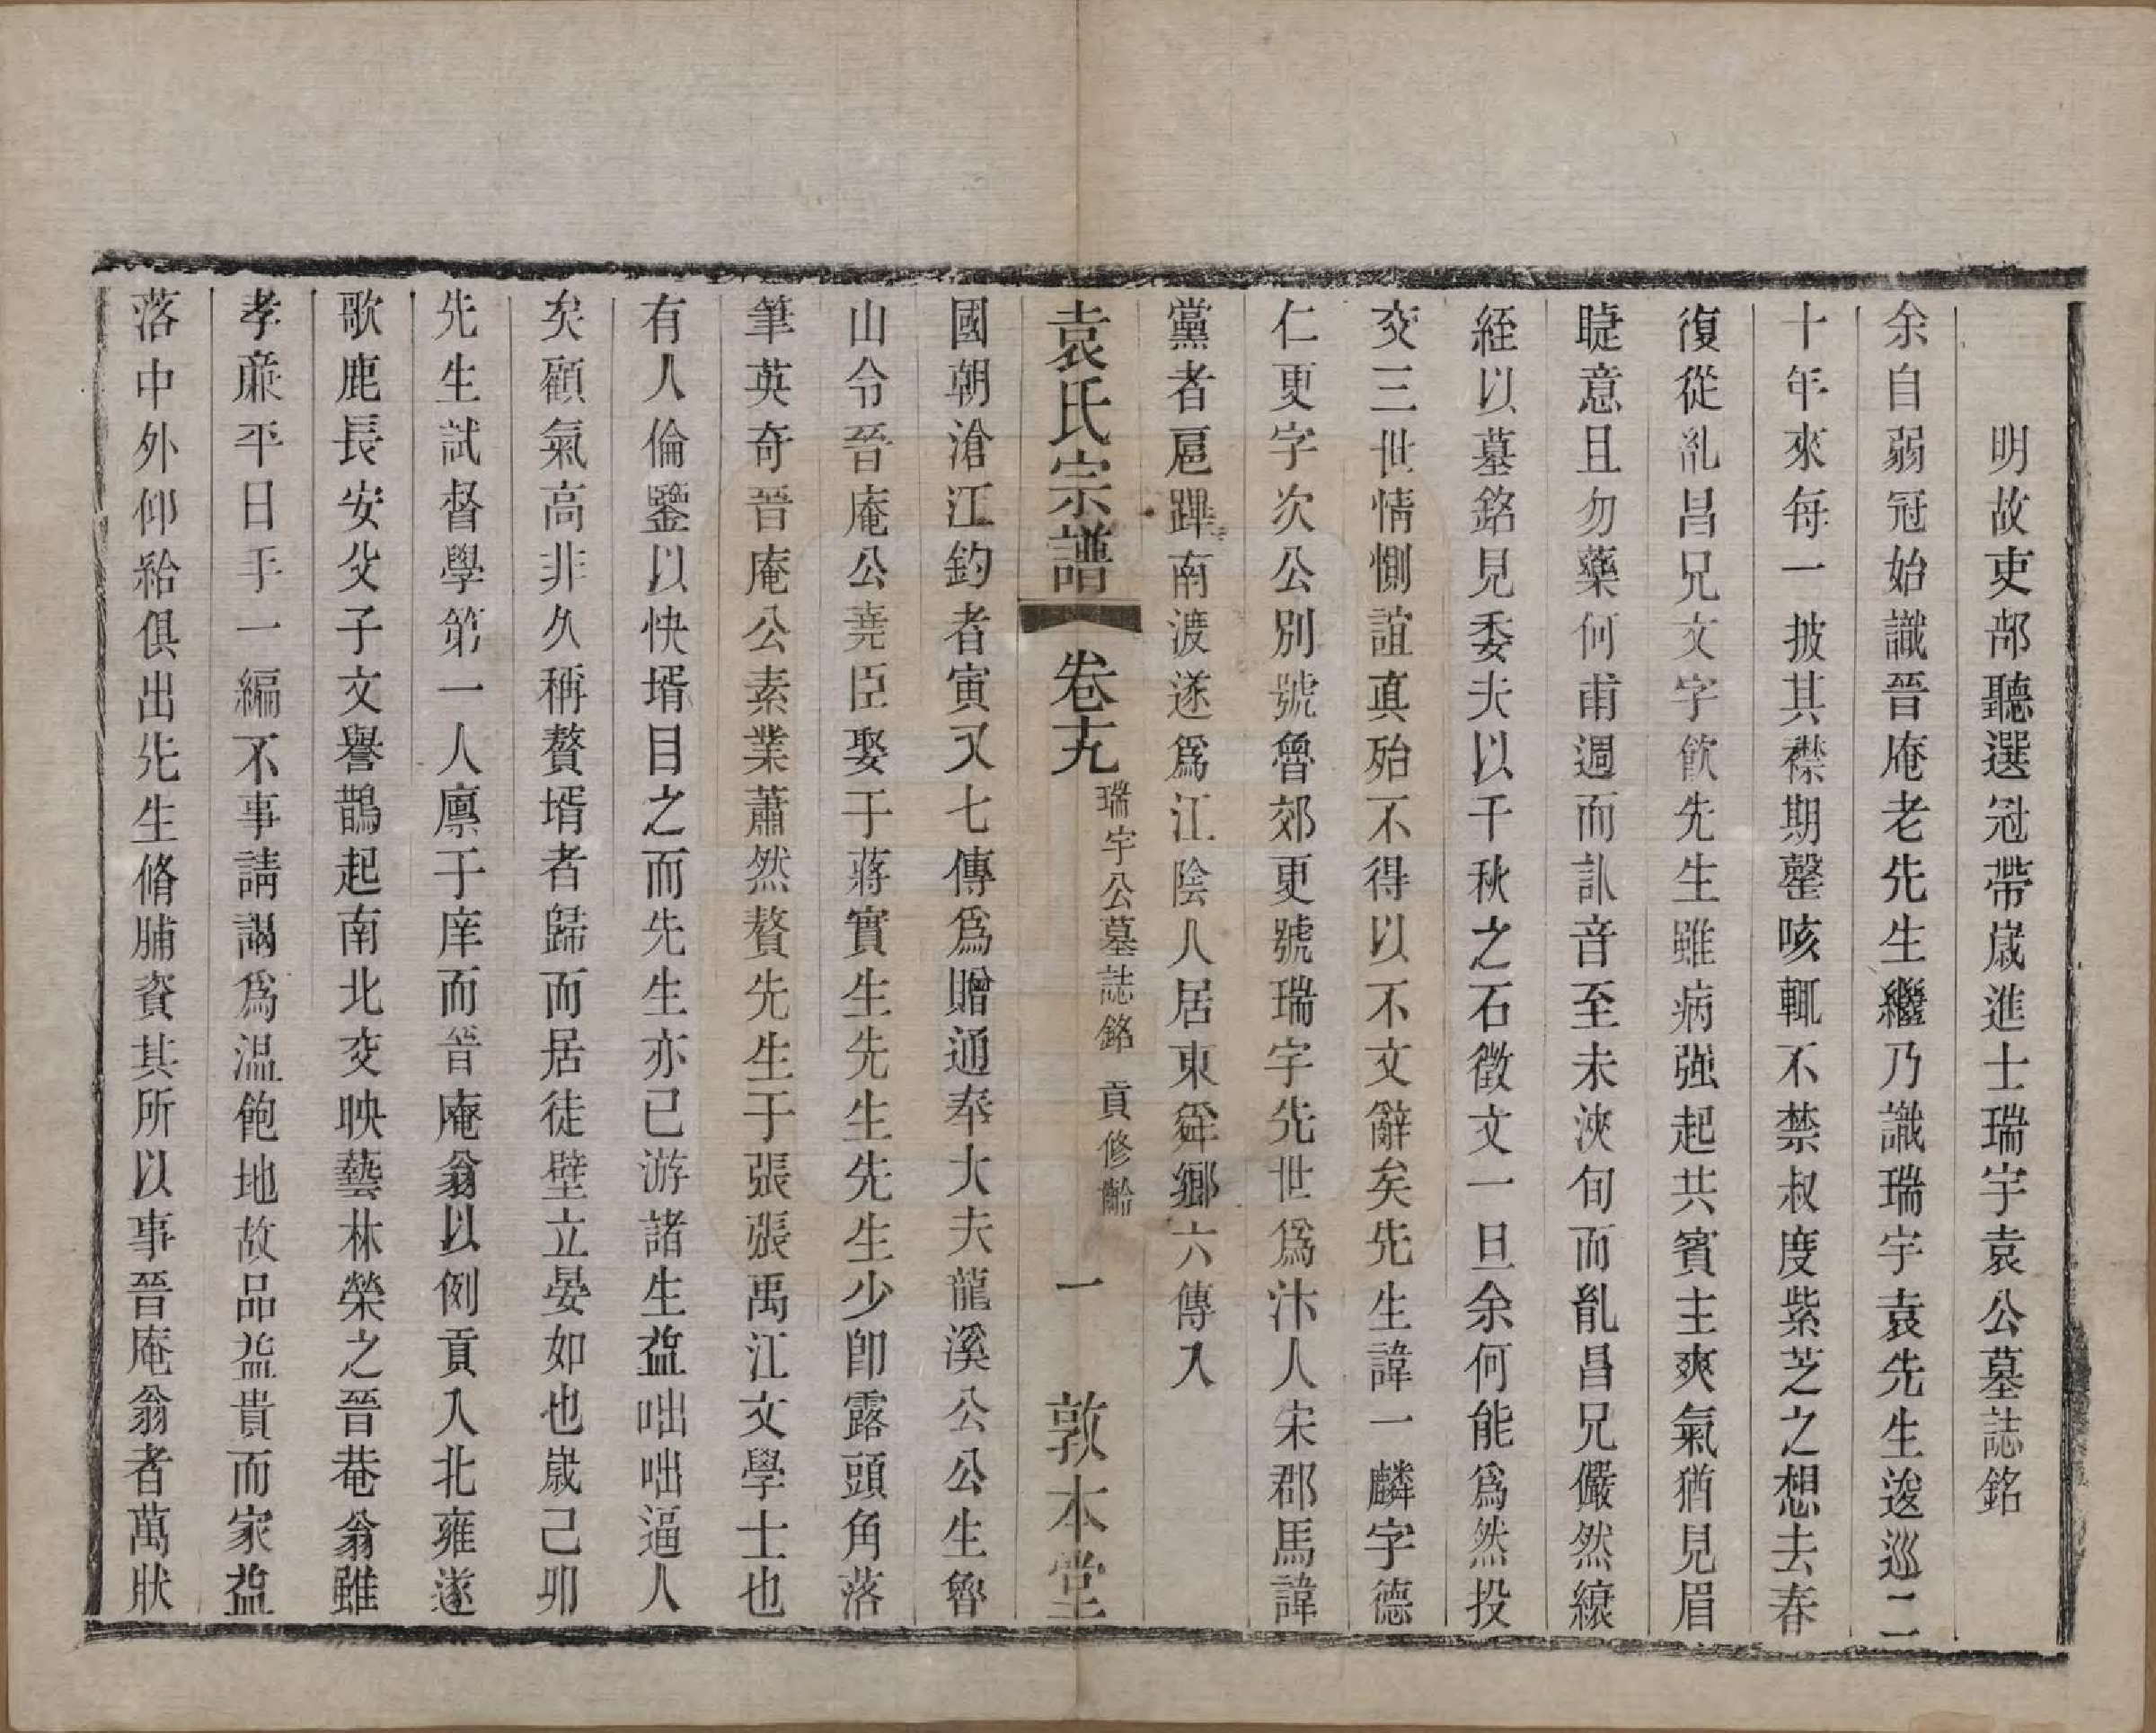 明故吏部聽選冠帶歲進士瑞宇袁公墓誌銘
余自弱冠始識晉庵老先生繼乃識瑞宇袁先生逡巡二
十年來每一披其襟期罄咳輒不禁叔度紫芝之想去春
復從胤昌兄文字飲先生雖病强起共賓主爽氣猶見眉
睫意且勿藥何甫週而訃音至未浹旬而胤昌兄儼然縗
絰以墓銘見委夫以千秋之石徵文一旦余何能爲然投
交三世情惻誼真殆不得以不文辭矣先生諱一麟字德
仁更字次公別號魯郊更號瑞宇先世爲汴人宋郡馬諱
黨者扈蹕南渡遂爲江陰人居東舜鄉六傳入
袁氏宗譜 卷十九 瑞宇公墓誌銘 貢修齡 一 敦本堂
國朝滄江釣者寅又七傳爲贈通奉大夫龍溪公公生魯
山令晉庵公堯臣娶于蔣實生先生先生少卽露頭角落
筆英奇晉庵公素業蕭然贅先生于張張禹江文學士也
有人倫鑒以快壻目之而先生亦已游諸生益咄咄逼人
矣顧氣高非久稱贅壻者歸而居徒壁立晏如也歲己卯
先生試督學第一人廩于庠而晉庵翁以例貢入北雍遂
歌鹿長安父子文譽鵲起南北交映藝林榮之晉菴翁雖
孝廉平日手一編不事請謁爲温飽地故品益貴而家益
落中外仰給俱出先生脩脯資其所以事晉庵翁者萬狀